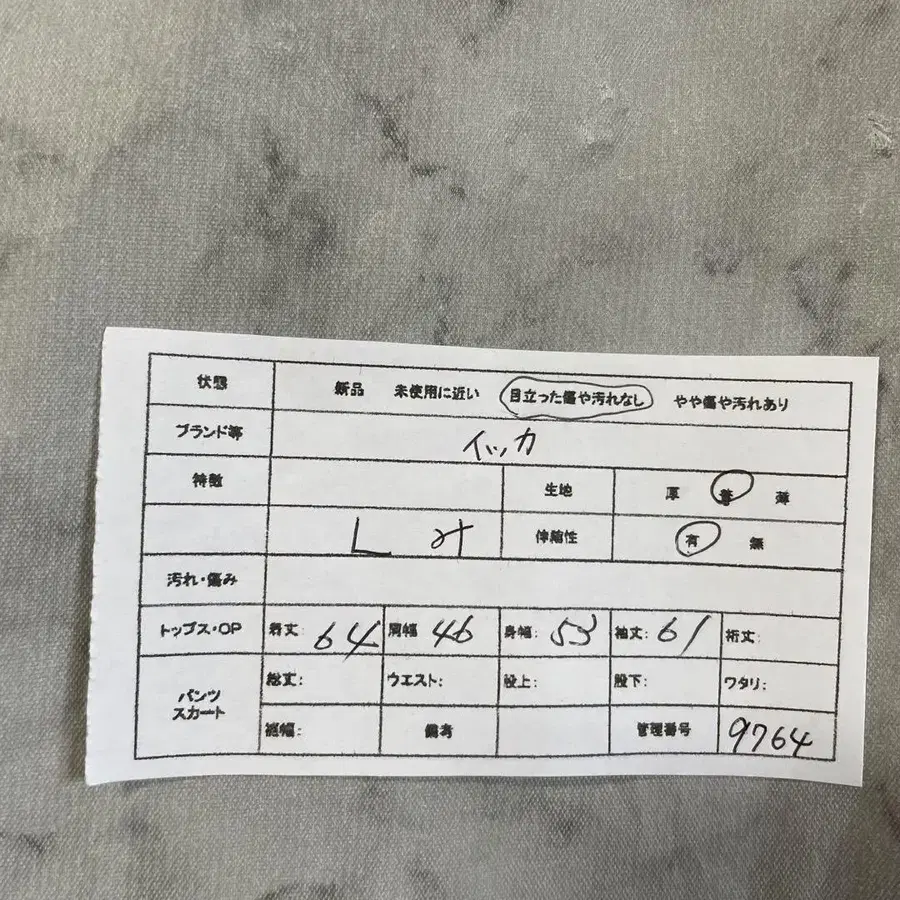 状態 新品 未使用に近い 目立った傷や汚れなし やや傷や汚れあり
ブランド等 イッカ
特徴 生地 厚 普 薄
L 伸縮性 有 無
汚れ・傷み
トップス・OP 着丈: 64 肩幅 46 身幅: 53 袖丈: 61 裄丈:
パンツ 総丈: ウエスト: 股上: 股下: ワタリ:
スカート
裾幅: 備考 管理番号 9764